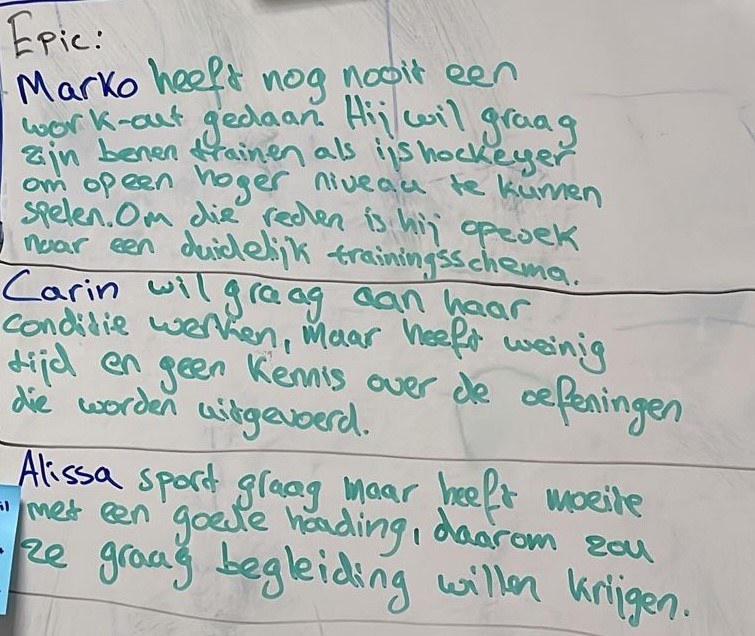 Epic:
Marko heeft nog nooit een
work-out gedaan. Hij wil graag
zijn benen trainen als ijshockeyer
om op een hoger niveau te kumen
spelen. Om die reden is hij opzoek
naar een duidelijk trainingsschema.
Carin wil graag aan haar
conditie werken, maar heeft weinig
tijd en geen kennis over de oefeningen
die worden uitgevoerd.
Alissa sport graag maar heeft moeite
met een goede houding, daarom zou
ze graag begeleiding willen krijgen.